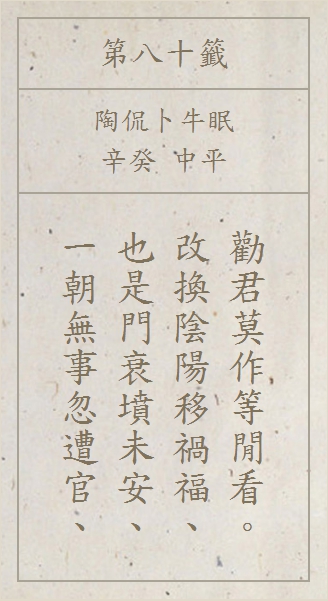 第八十籤
陶侃卜牛眠
辛癸 中平
一朝無事忽遭官、
也是門衰墳未安、
改換陰陽移禍福、
勸君莫作等閒看。